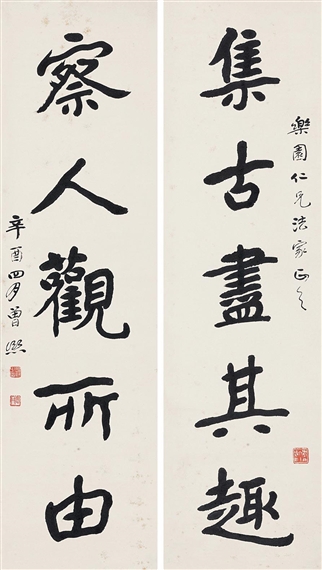 樂園仁兄法家正之
集古盡其趣
察人觀所由
辛酉四月曾熙